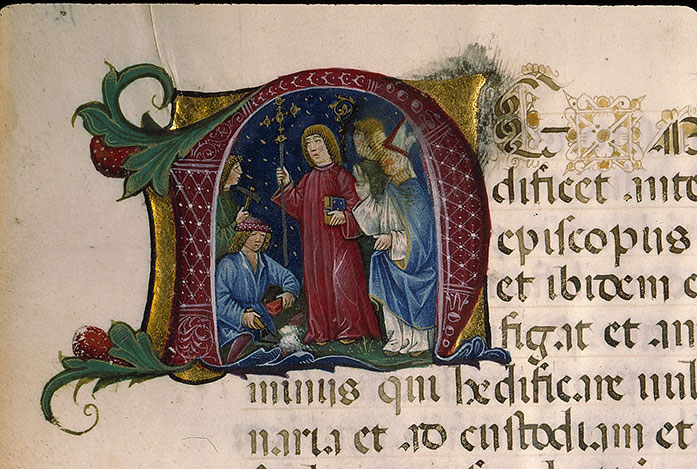 N E AB
dificet ante
episcopus
et ibidem c
figat et an
minus qui hedificare uul
naria et ad custodiam et